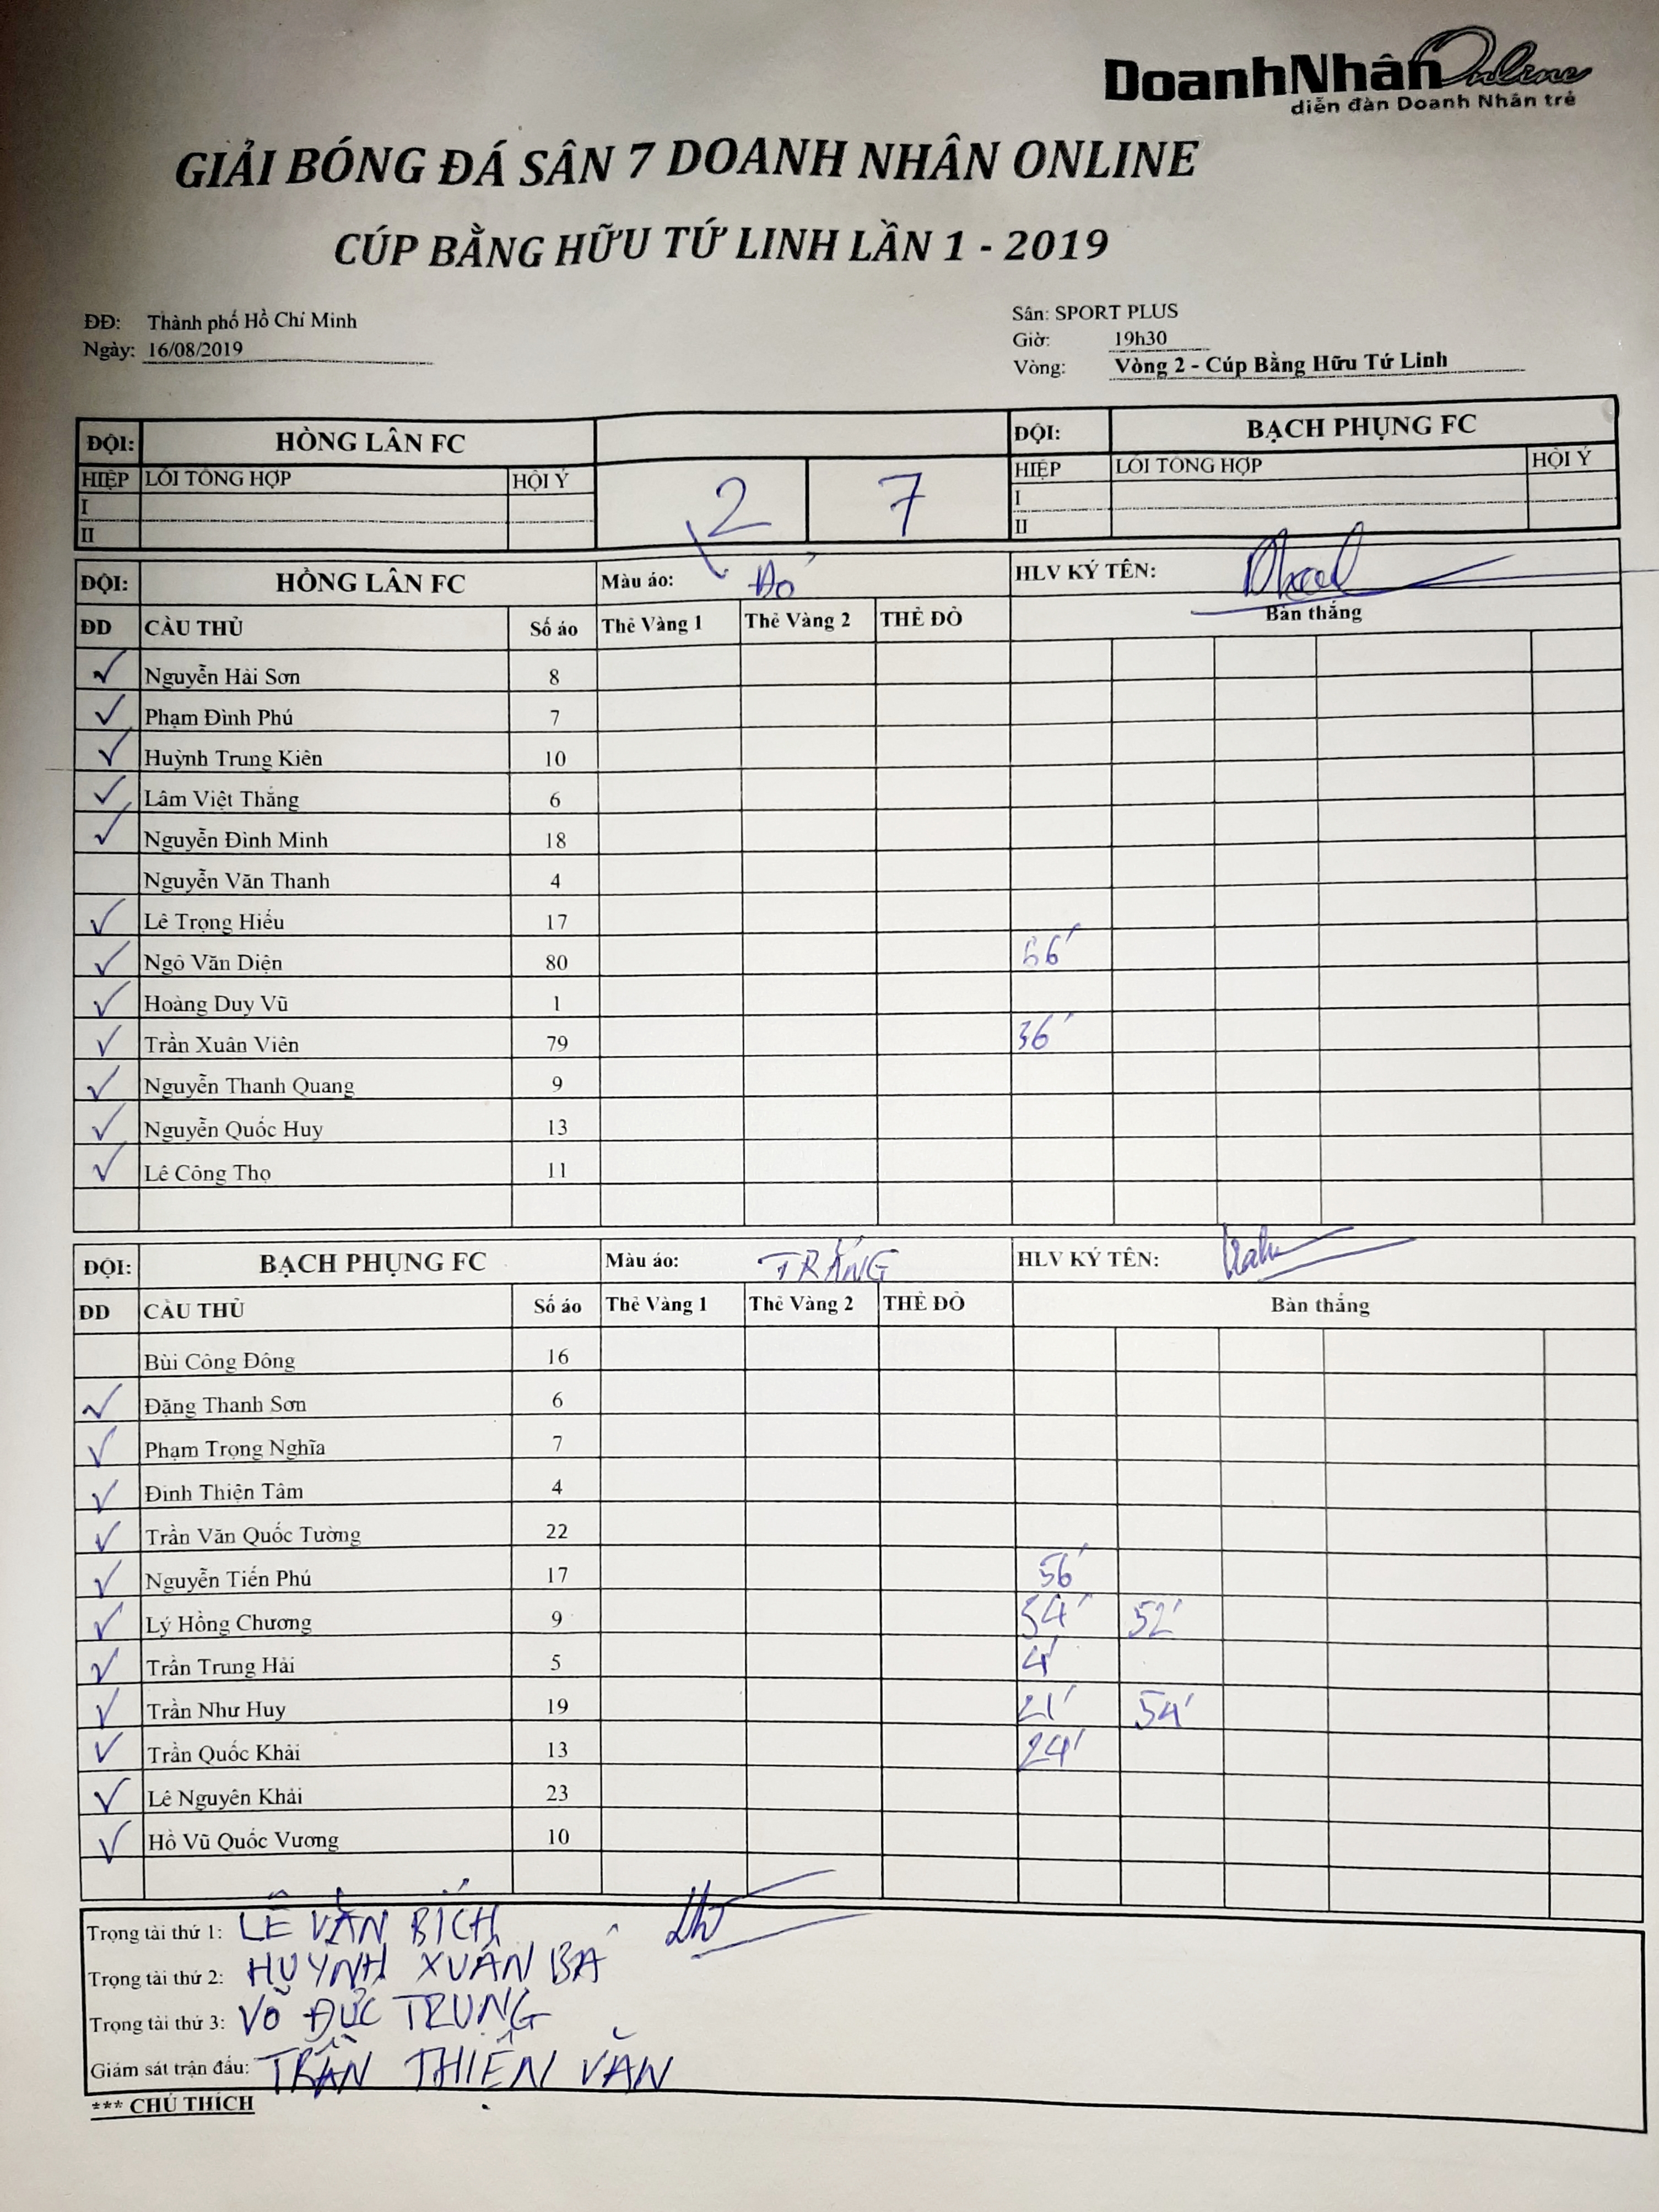 DoanhNhânOnline
diễn đàn Doanh Nhân trẻ
GIẢI BÓNG ĐÁ SÂN 7 DOANH NHÂN ONLINE
CÚP BẰNG HỮU TỨ LINH LẦN 1 - 2019
ĐĐ: Thành phố Hồ Chí Minh
Ngày: 16/08/2019
Sân: SPORT PLUS
Giờ: 19h30
Vòng: Vòng 2 - Cúp Bằng Hữu Tứ Linh
ĐỘI: HỒNG LÂN FC ĐỘI: BẠCH PHỤNG FC
HIỆP LỖI TỔNG HỢP HỘI Ý 2 7 HIỆP LỖI TỔNG HỢP HỘI Ý
I I
II II
ĐỘI: HỒNG LÂN FC Màu áo: Đỏ HLV KÝ TÊN:
ĐD CẦU THỦ Số áo Thẻ Vàng 1 Thẻ Vàng 2 THẺ ĐỎ Bàn thắng
✓ Nguyễn Hải Sơn 8
✓ Phạm Đình Phú 7
✓ Huỳnh Trung Kiên 10
✓ Lâm Việt Thắng 6
✓ Nguyễn Đình Minh 18
Nguyễn Văn Thanh 4
✓ Lê Trọng Hiếu 17
✓ Ngô Văn Diện 80
✓ Hoàng Duy Vũ 1
✓ Trần Xuân Viên 79 36'
✓ Nguyễn Thanh Quang 9
✓ Nguyễn Quốc Huy 13
✓ Lê Công Thọ 11
ĐỘI: BẠCH PHỤNG FC Màu áo: TRẮNG HLV KÝ TÊN:
ĐD CẦU THỦ Số áo Thẻ Vàng 1 Thẻ Vàng 2 THẺ ĐỎ Bàn thắng
Bùi Công Đông 16
✓ Đặng Thanh Sơn 6
✓ Phạm Trọng Nghĩa 7
✓ Đinh Thiện Tâm 4
✓ Trần Văn Quốc Tường 22
✓ Nguyễn Tiến Phú 17 56'
✓ Lý Hồng Chương 9 52'
✓ Trần Trung Hải 5 4'
✓ Trần Như Huy 19 21' 54'
✓ Trần Quốc Khải 13 24'
✓ Lê Nguyên Khải 23
✓ Hồ Vũ Quốc Vương 10
Trọng tài thứ 1: LÊ VĂN BÍCH
Trọng tài thứ 2: HUỲNH XUÂN BA
Trọng tài thứ 3: VÕ ĐỨC TRUNG
Giám sát trận đấu: TRẦN THIỆN VĂN
*** CHÚ THÍCH